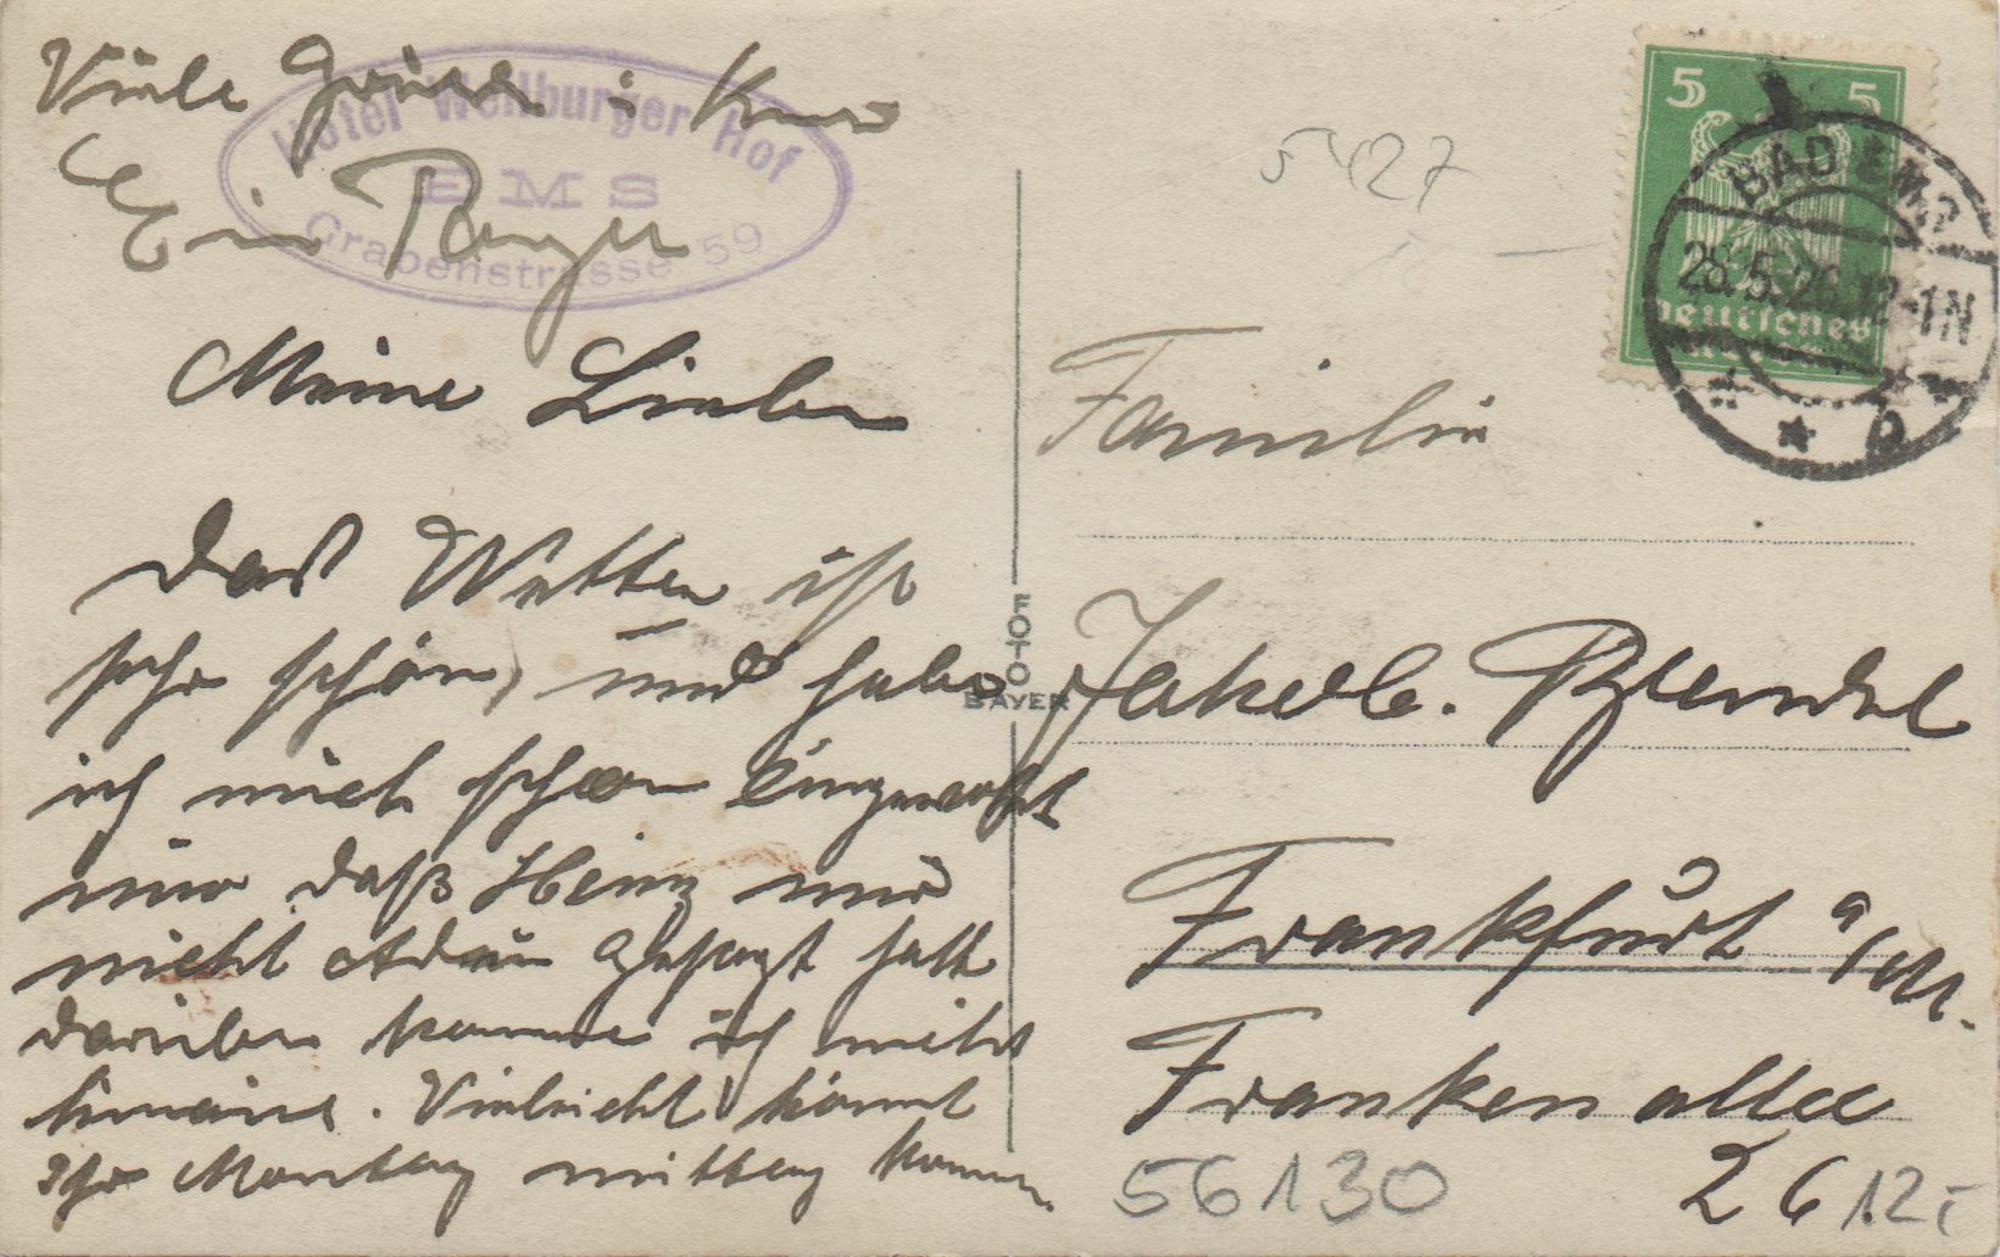 Viele Grüsse : Kurt
Hotel Weilburger Hof
EMS
Grabenstrasse 59
Meine Lieben
Das Wetter ist
sehr schön, und habe
ich mich schon eingewöhnt
nur daß Heinz mir
nicht Adieu gesagt hatt
darüber komme ich nicht
hinaus. Vielleicht kommt
Ihr Montag mittag
FOTO
BAYER
5427
5 5
BAD EMS
25.5.26.12-1N
Deutsches
Familie
Jakob.
Frankfurt a/M.
Frankenallee
26
56130
12,-